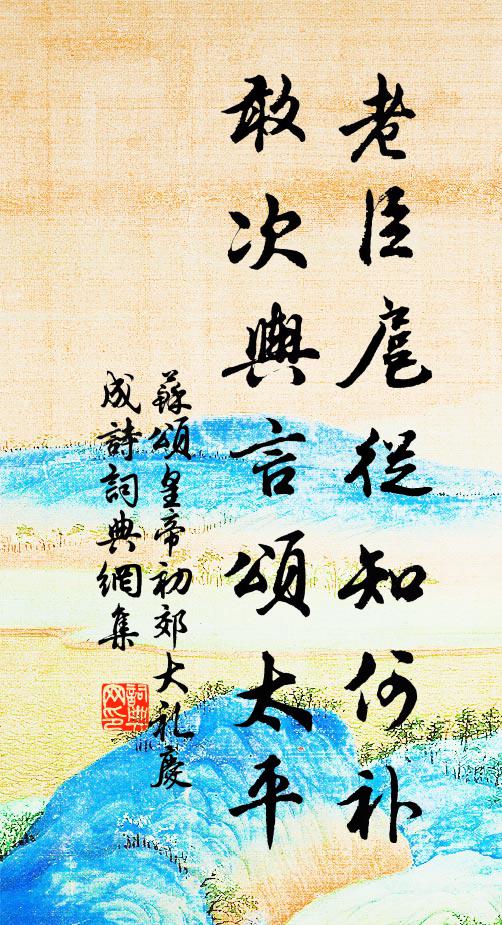 老臣扈從知何补
敢次輿言頌太平
蘇頌皇帝初郊大礼慶
成詩詞典網集
詞典网印